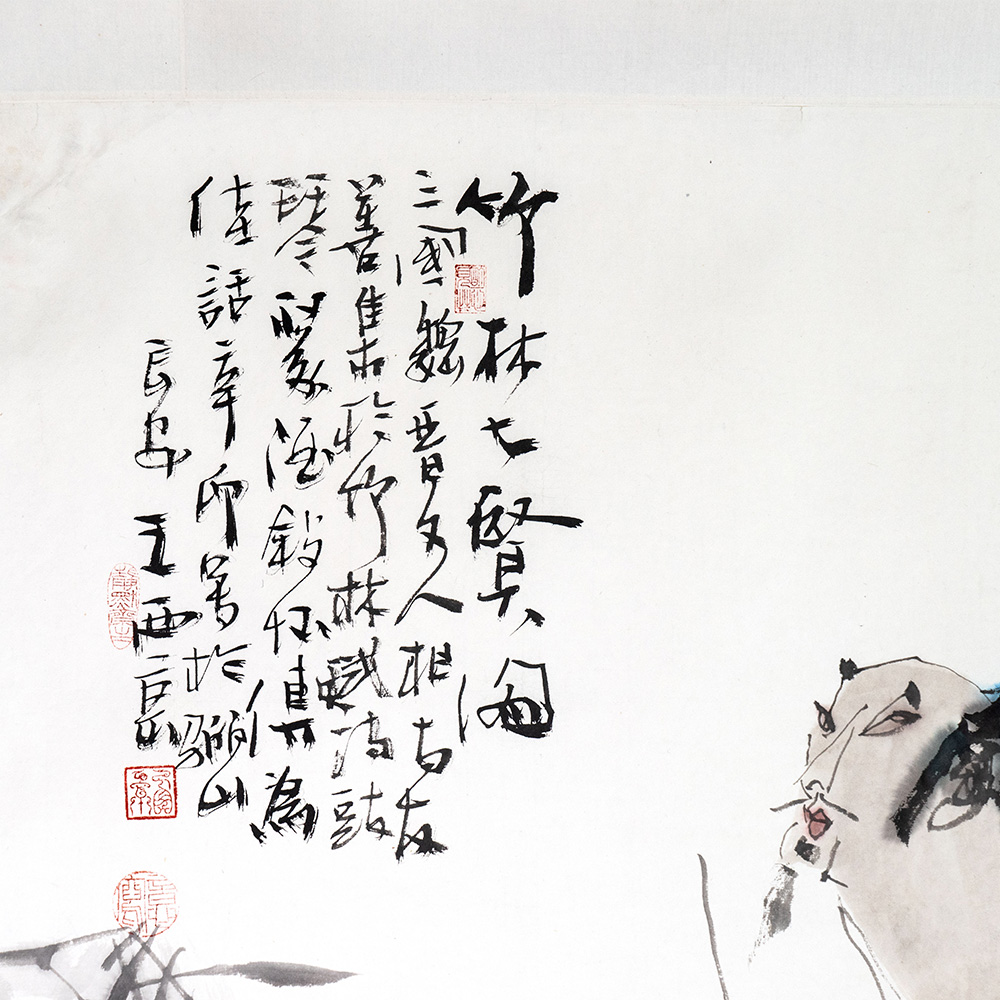 竹林七賢圖
三國魏晉文人相與友
善集於竹林賦詩鼓
琴飲酒敘懷傳為
佳話辛卯写於驪山
長安王西京